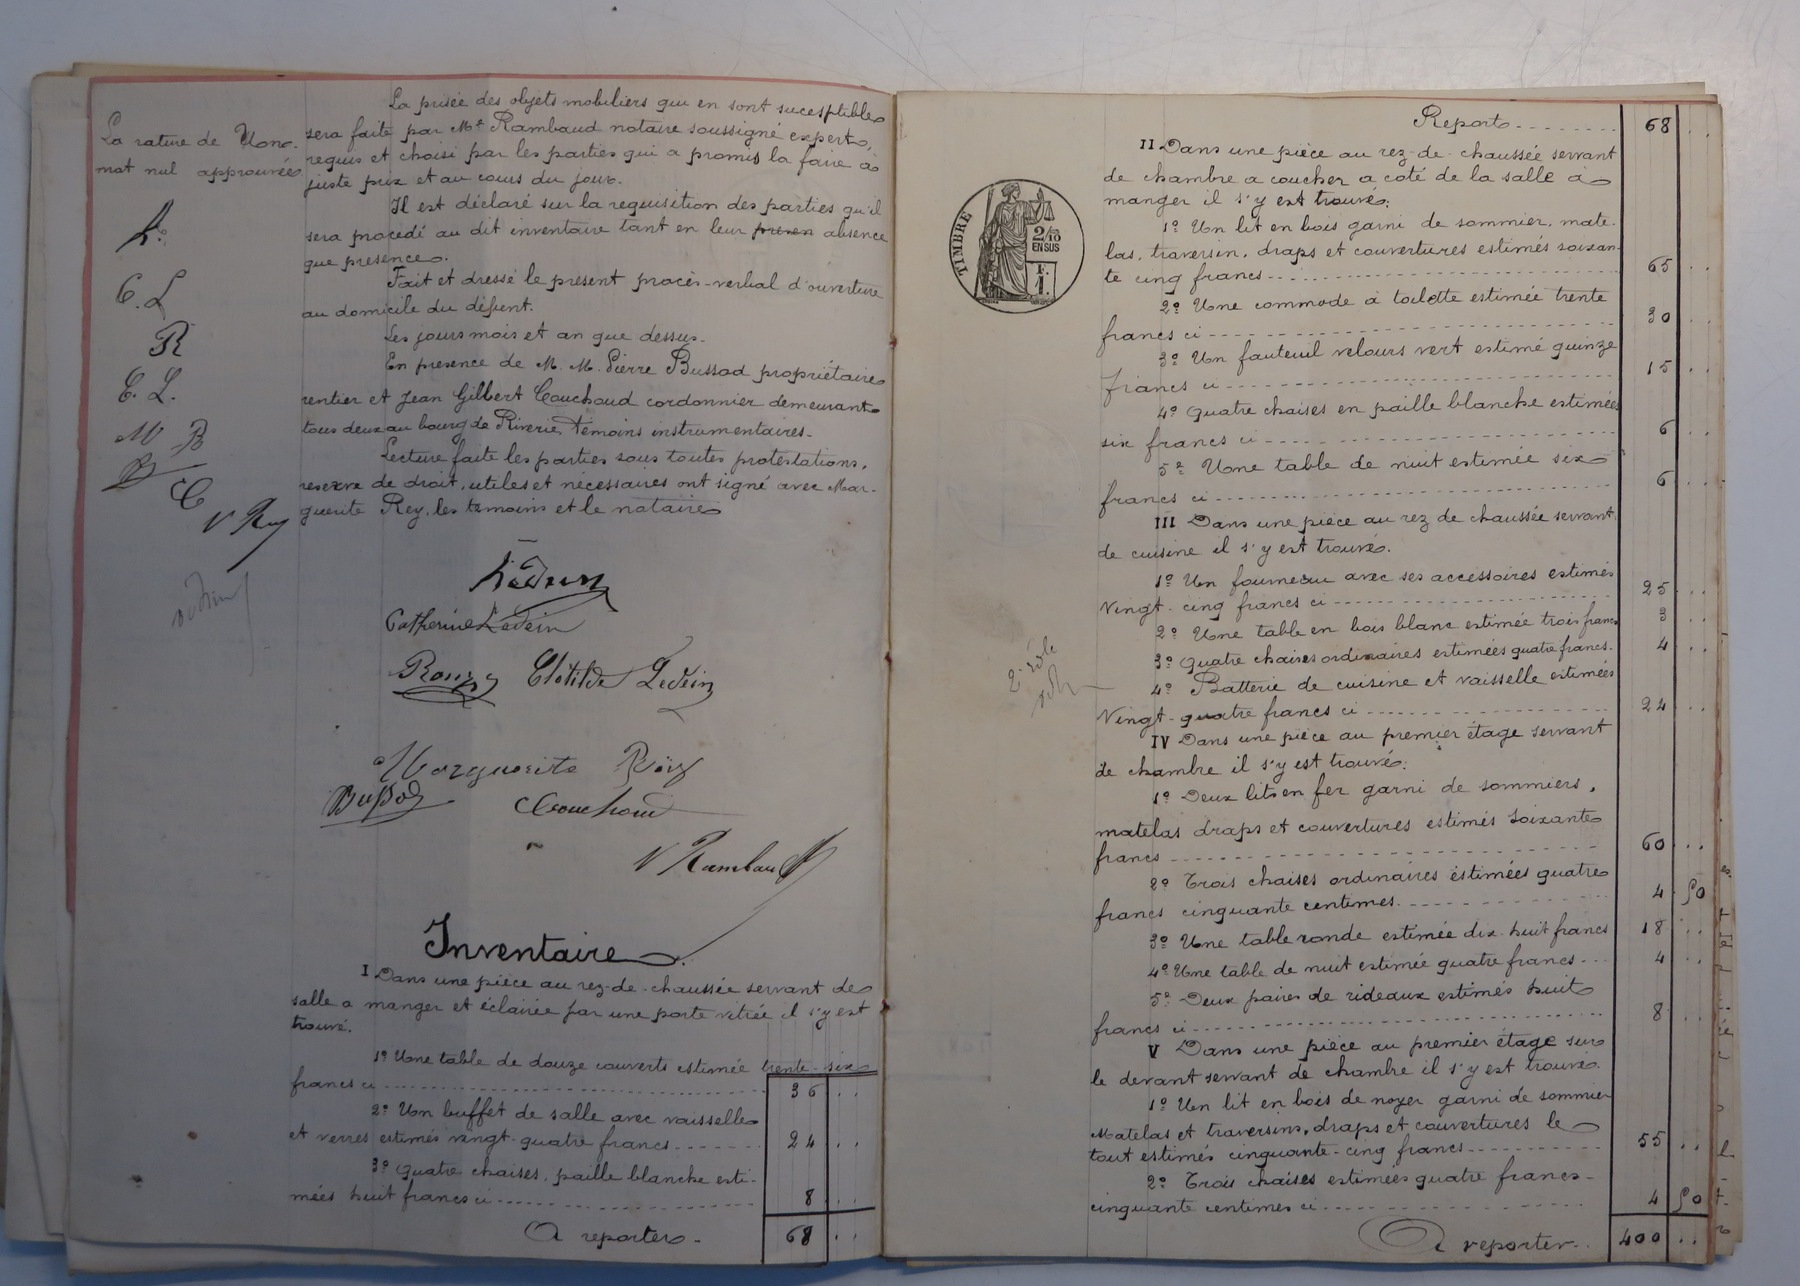 La prisée des objets mobiliers qui en sont sucesptibles
sera faite par Me Rambaud notaire soussigné expert,
requis et choisi par les parties qui a promis la faire à
juste prix et au cours du jour.
Il est déclaré sur la requisition des parties qu'il
sera procédé au dit inventaire tant en leur presen absence
que presence.
Fait et dressé le présent procès-verbal d'ouverture
au domicile du défunt.
Les jours mois et an que dessus.
En presence de M. M. Pierre Bussod propriétaire
rentier et Jean Gilbert Couchoud cordonnier demeurant
tous deux au bourg de Riverie, témoins instrumentaires.
Lecture faite les parties sous toutes protestations,
reserve de droit, utiles et nécessaires ont signé avec Mar-
guerite Rey, les temoins et le notaire
La rature de Un
mot nul approuvée
C. L
R
C. L.
M R
B
C
V Ra
Catherine Ledein
Clotilde Ledein
Marguerite Rey
Bussod
Couchoud
V Rambaud
Inventaire.
I Dans une pièce au rez-de-chaussée servant de
salle a manger et éclairée par une porte vitrée il s'y est
trouvé.
1º Une table de douze couverts estimée trente-six
francs ci 36 ..
2º Un buffet de salle avec vaisselle
et verres estimés vingt-quatre francs 24 ..
3º Quatre chaises, paille blanche esti-
mées huit francs ci 8 ..
A reporter. 68 ..
Report 68 ..
TIMBRE
2/10
EN SUS
F.
1.
II Dans une pièce au rez-de-chaussée servant
de chambre a coucher a coté de la salle à
manger il s'y est trouvé.
1º Un lit en bois garni de sommier, mate-
las, traversin, draps et couvertures estimés soixan-
te cinq francs 65 ..
2º Une commode à toilette estimée trente
francs ci 30 ..
3º Un fauteuil velours vert estimé quinze
francs ci 15 ..
4º Quatre chaises en paille blanche estimées
six francs ci 6 ..
5º Une table de nuit estimée six
francs ci 6 ..
III Dans une pièce au rez de chaussée servant
de cuisine il s'y est trouvé.
1º Un fourneau avec ses accessoires estimés
Vingt-cinq francs ci 25 ..
2º Une table en bois blanc estimée trois francs 3 ..
3º Quatre chaises ordinaires estimées quatre francs. 4 ..
2e rôle
4º Batterie de cuisine et vaisselle estimées
Vingt-quatre francs ci 24 ..
IV Dans une pièce au premier étage servant
de chambre il s'y est trouvé.
1º Deux lits en fer garni de sommiers,
matelas draps et couvertures estimés soixante
francs 60 ..
2º Trois chaises ordinaires estimées quatre
francs cinquante centimes. 4 50
3º Une table ronde estimée dix-huit francs 18 ..
4º Une table de nuit estimée quatre francs 4 ..
5º Deux paires de rideaux estimés huit
francs ci 8 ..
V Dans une pièce au premier étage sur
le devant servant de chambre il s'y est trouvé.
1º Un lit en bois de noyer garni de sommier
Matelas et traversins, draps et couvertures le
tout estimés cinquante-cinq francs 55 ..
2º Trois chaises estimées quatre francs
cinquante centimes ci 4 50
A reporter. 400 ..